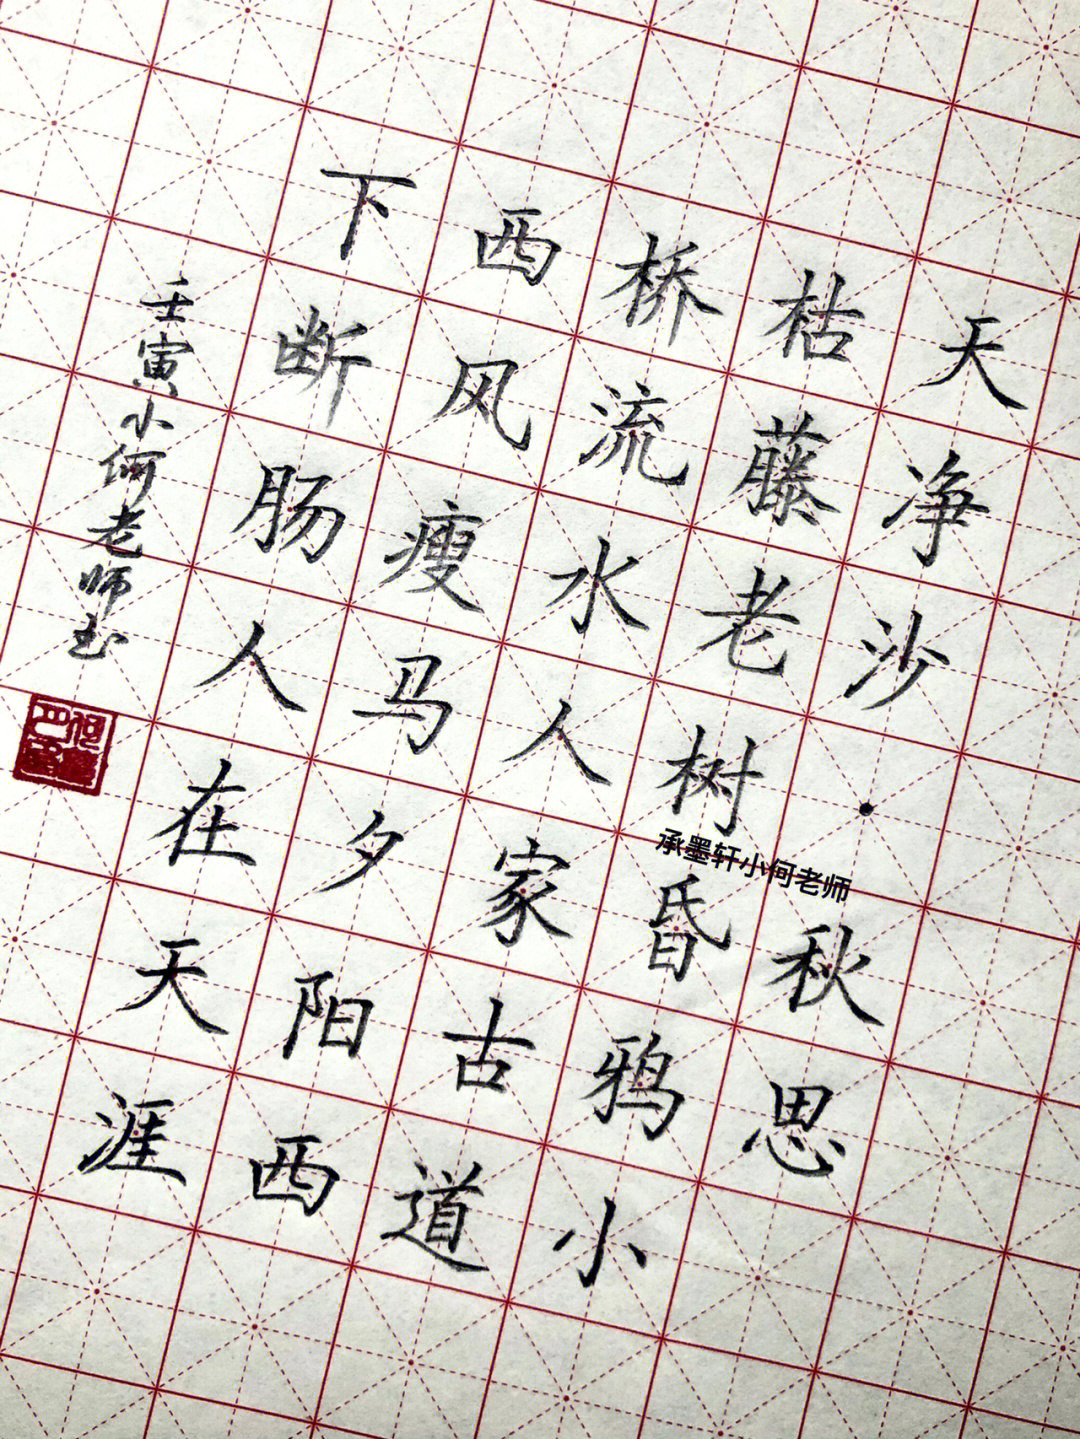 天净沙·秋思
枯藤老树昏鸦小
桥流水人家古道
西风瘦马夕阳西
下断肠人在天涯
壬寅小何老师书
承墨轩小何老师